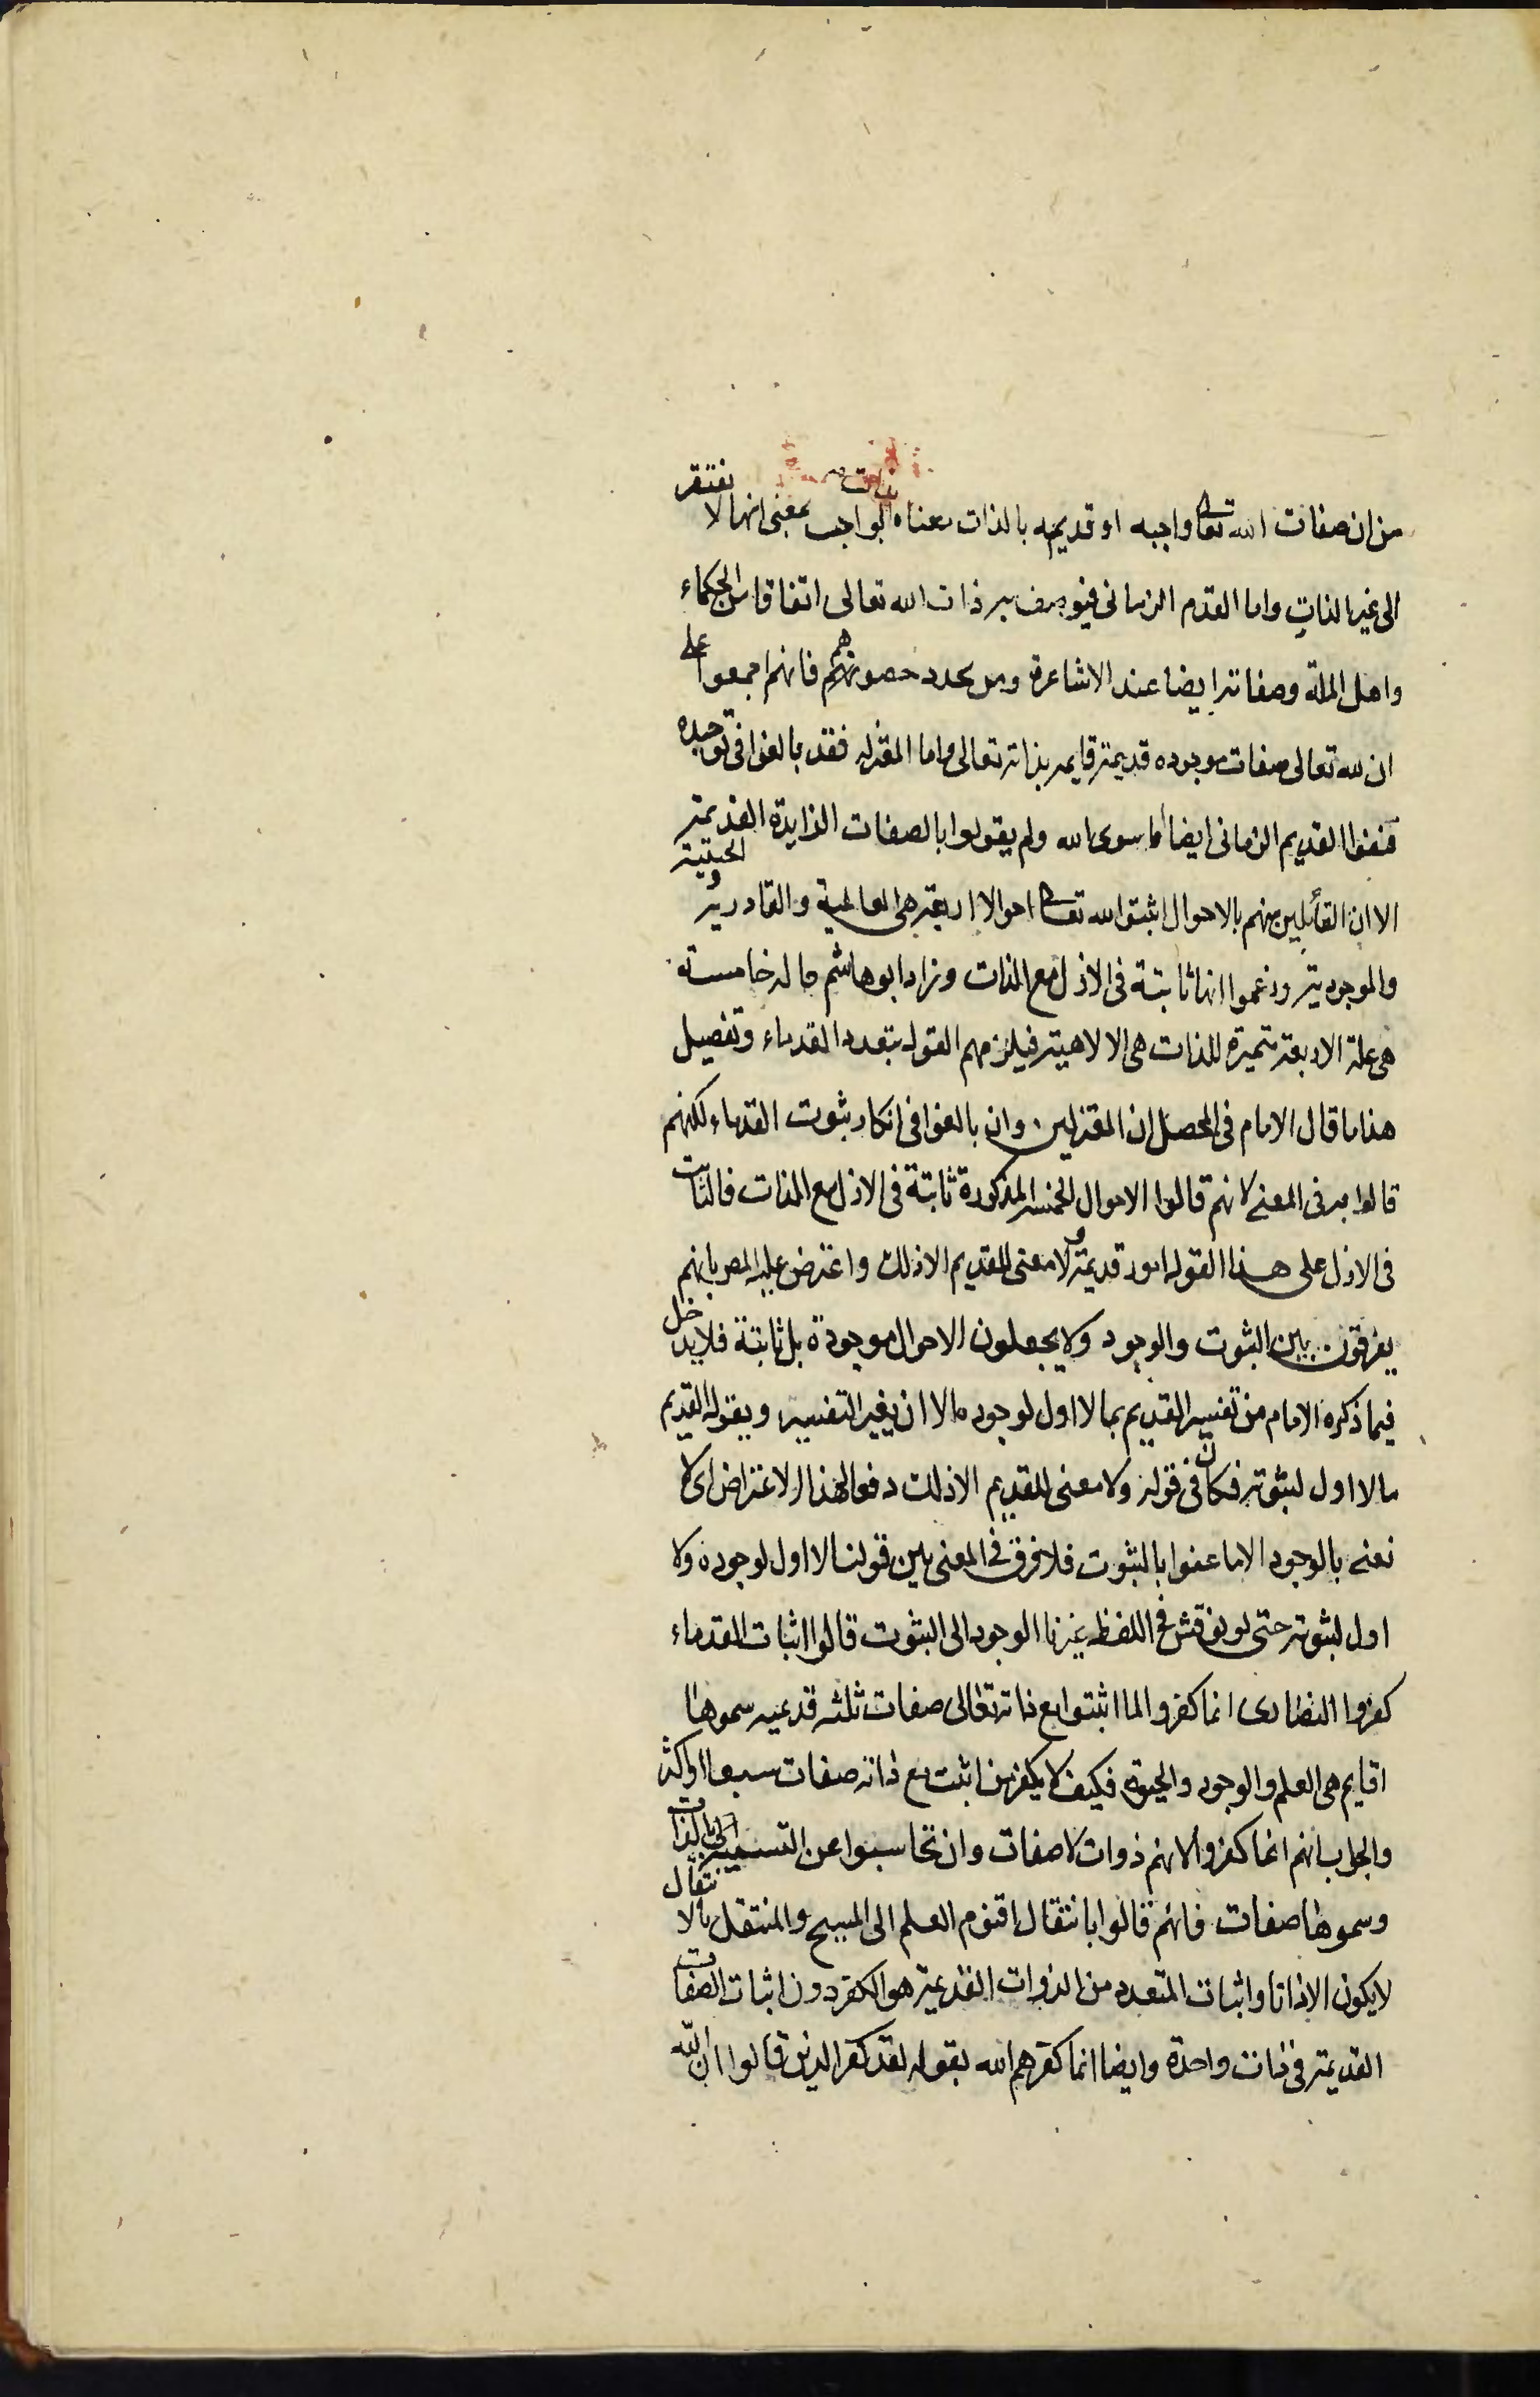 من ان صفات الله تعالى واجبه او قديمه بالذات معناه بذات الواجب بمعنى انها لا تفتقر
الى غير الذات واما القدم الزمانى فيوصف به ذات الله تعالى اتفاقا من الحكماء
واهل الملة وصفاته ايضا عند الاشاعرة ومن يحدد حصوتهم فانهم اجمعوا على
ان لله تعالى صفات موجوده قديمة قايمه بذاته تعالى واما المعتزله فقد بالغوا فى توحيده
فنفوا القديم الزمانى ايضا لما سوى الله ولم يقولوا بالصفات الزايدة القديمة
الا ان القائلين منهم بالاحوال اثبتوا لله تعالى احوالا اربعة هى العالمية والقادرية والحيّيّة
والموجودية وزعموا انها ثابتة فى الازل مع الذات وزاد ابو هاشم حاله خامسة
هى علة الاربعة متميزة للذات هى الالاهية فيلزمهم القول بتعدد القدماء وتفصيل
هذا ما قال الامام فى المحصل ان المعتزلين وان بالغوا فى انكار ثبوت القدماء لكنهم
قالوا به فى المعنى لانهم قالوا الاحوال الخمسة المذكورة ثابتة فى الازل مع الذات فالثابت
فى الازل على هذا القول امور قديمة ولا معنى للقديم الا ذلك واعترض عليه المصر بانهم
يفرقون بين الثبوت والوجود ولا يجعلون الاحوال موجودة بل ثابتة فلا يدخل
فيما ذكره الامام من تفسير القديم بما لا اول لوجوده الا ان يغير التفسير ويقول القديم
ما لا اول لثبوته فكان فى قوله ولا معنى للقديم الا ذلك دفعا لهذا الاعتراض اى لا
نعنى بالوجود الا ما عنوا بالثبوت فلا فرق فى المعنى بين قولنا لا اول لوجوده ولا
اول لثبوته حتى لو نوقش فى اللفظ غيرنا الوجود الى الثبوت قالوا اثبات القدماء
كفروا النصارى انما كفروا لما اثبتوا مع ذاته تعالى صفات ثلثه قديميه سموها
اقايم هى العلم والوجود والحيوة فكيف لا يكفر من اثبت مع ذاته صفات سبعا او اكثر
والجواب انهم انما كفروا لانهم ذوات لا صفات وان تحاسبوا عن التسمية بالذات
وسموها صفات فانهم قالوا بانتقال اقنوم العلم الى المسيح والمنتقل بالانتقال
لا يكون الا ذاتا واثبات المتعدد من الذوات القديمة هو الكفر دون اثبات الصفات
القديمة فى ذات واحدة وايضا انما كفرهم الله بقوله لقد كفر الذين قالوا ان الله